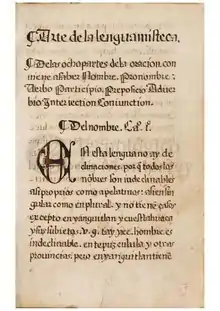 ¶ Arte de la lengua misteca.
¶ De las ocho partes de la oracion. con
viene a saber Nombre. Pronombre.
Verbo Participio. Preposicio Adver
bio Interiection Coniunction.
¶ Del nombre. Ca. 1.
En esta lengua no ay de
clinaciones. por q̄ todos los
nōbres son indeclinables
asi proprios como apelatiuos: asi en sin
gular como en plural. y no tiene casos
excepto en yanguitlan y cuestlahuaca
y sus subietos. v. g. tay yee. hombre. es
indeclinable. en tepuzculula y otras
prouincias. pero en yanguitlan tiene